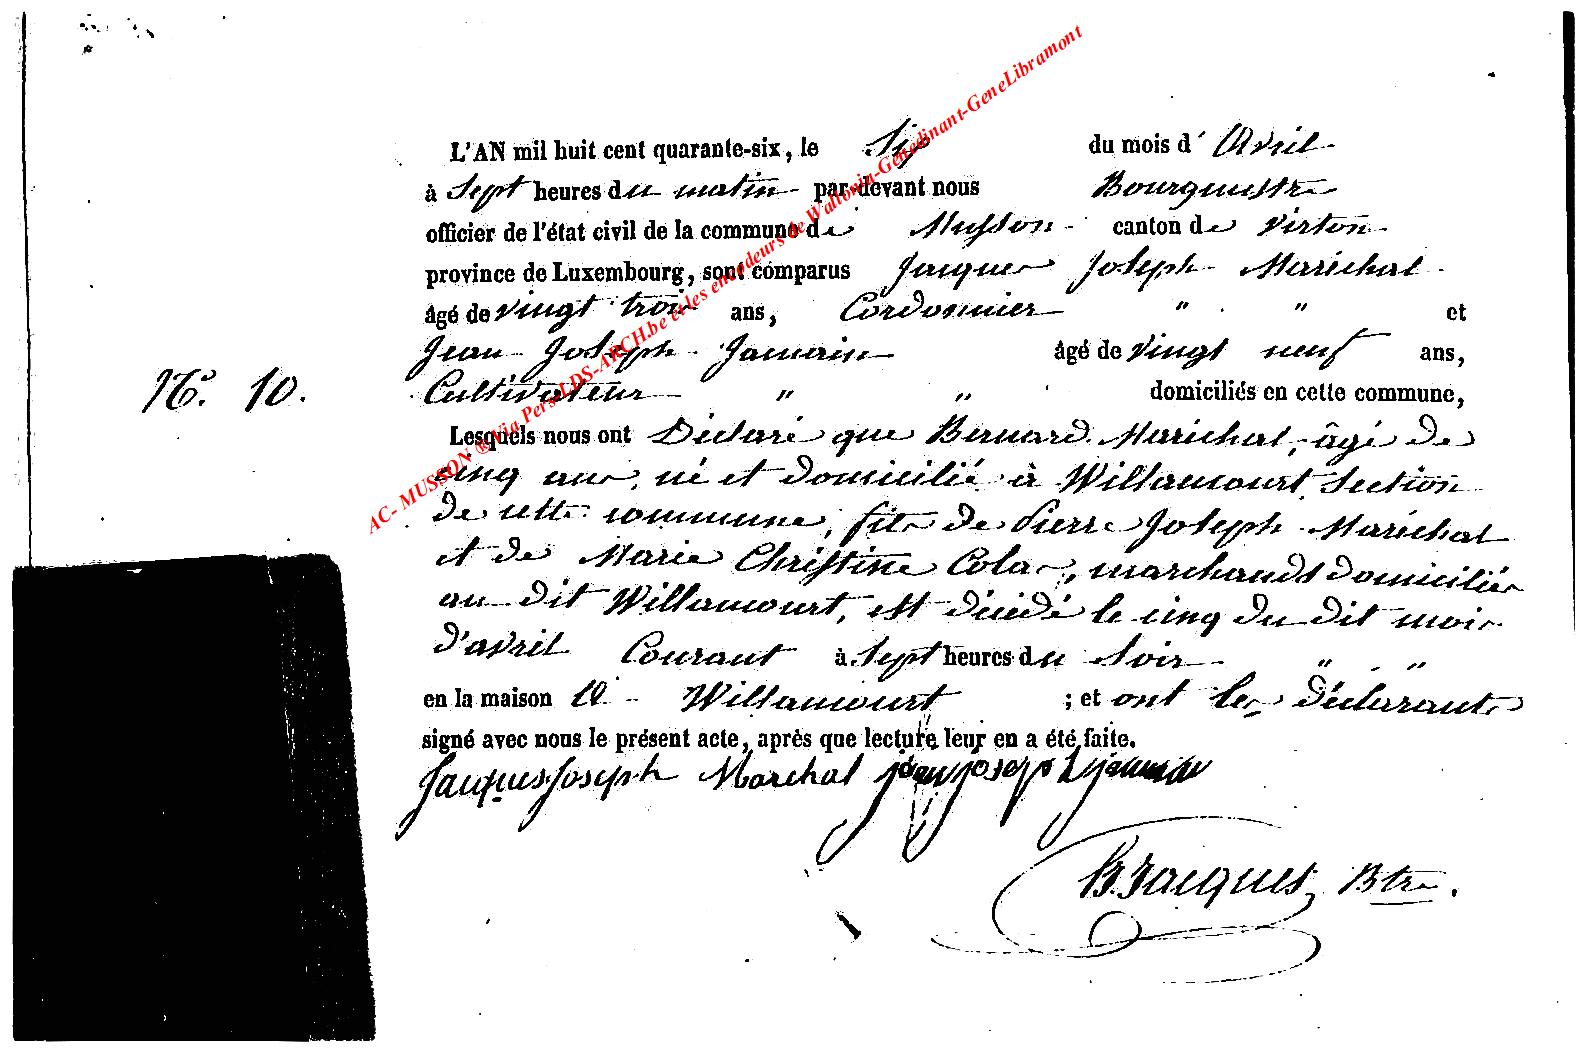 AC- MUSSON ® Via Perso LDS-ARCH.be et les encodeurs de Wallonia-Genedinant-GeneLibramont
L'AN mil huit cent quarante-six, le Six du mois d' Avril
à Sept heures du matin par devant nous Bourgmestre
officier de l'état civil de la commune de Musson canton de Virton
province de Luxembourg, sont comparus Jacques Joseph Maréchal
âgé de vingt trois ans, Cordonnier " " et
Jean Joseph Jamain âgé de vingt neuf ans,
N° 10. Cultivateur " " domiciliés en cette commune,
Lesquels nous ont Déclaré que Bernard Maréchal, âgé de
cinq ans, né et domicilié à Willancourt, Section
de cette commune, fils de Pierre Joseph Maréchal
et de Marie Christine Colas, marchands domiciliés
au dit Willancourt, est décédé le cinq du dit mois
d'avril Courant à Sept heures du Soir " "
en la maison à Willancourt ; et ont les déclarants
signé avec nous le présent acte, après que lecture leur en a été faite.
Jacques Joseph Marchal jean joseph jamain
Jacques Btre.